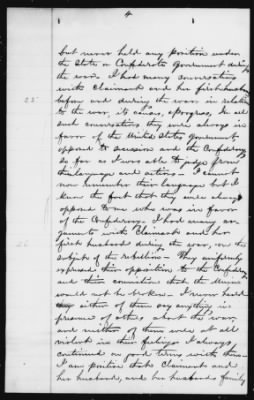 4
but never held any position under
the State or Confederate Government during
the war. I had many conversations
with Claimant and her first husband
before and during the war in relation
to the war, its causes, & progress, In all
such conversations they were always in
favor of the United States Government
opposed to secession and the Confederacy
so far as I was able to judge from
their language and actions. I cannot
now remember their language but I
know the fact that they were always
opposed to me who was in favor
of the Confederacy. I had many ar-
guments with Claimant and her
first husband during the war, on the
subject of the rebellion. They uniformly
expressed their opposition to the Confederacy
and their conviction that the Union
would not be broken. I never heard
either of them say anything in
presence of others, about the war,
and neither of them were at all
violent in their feelings. I always
continued on good terms with them
I am positive that Claimant and
her husband, and her husbands family
25
26